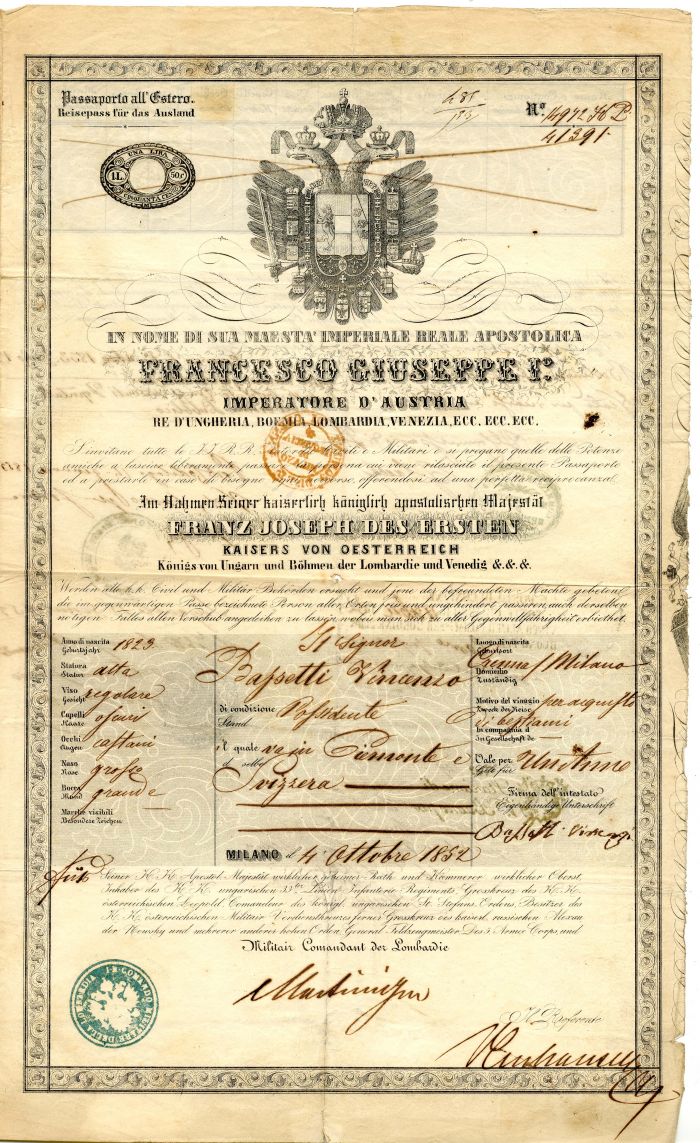 Passaporto all'Estero.
Reisepass für das Ausland
Nº 14972 H P.
41391
UNA LIRA
1 L. 50 C.
CINQUANTA CEN.
IN NOME DI SUA MAESTA' IMPERIALE REALE APOSTOLICA
FRANCESCO GIUSEPPE Iº.
IMPERATORE D'AUSTRIA
RE D'UNGHERIA, BOEMIA, LOMBARDIA, VENEZIA, ECC. ECC. ECC.
S'invitano tutte le I.I. R.R. e Militari e si pregano quelle delle Potenze
amiche a lasciar liberamente passare la persona cui viene rilasciato il presente Passaporto
ed a prestarle in caso di bisogno offerendosi ad una perfetta reciprocanza.
Im Nahmen Seiner kaiserlich königlich apostolischen Majestät
FRANZ JOSEPH DES ERSTEN
KAISERS VON OESTERREICH
Königs von Ungarn und Böhmen der Lombardie und Venedig &.&.&.
Werden alle k.k. Civil und Militar Behörden ersucht und jene der befreundeten Mächte gebeten
die in gegenwärtigen Passe bezeichnete Person aller Orten frei und ungehindert passiren, auch derselben
nötigen Falles allen Vorschub angedeihen zu lassen, wobei man sich zu aller Gegenwillfährigkeit erbiethet.
Anno di nascita 1823
Geburtsjahr
Statura alta
Statur
Viso regolare
Gesicht
Capelli oscuri
Haare
Occhi castani
Augen
Naso grosso
Nase
Bocca grande
Mund
Marche visibili
Besondere Zeichen
Il Signor
Bassetti Vincenzo
di condizione Possidente
Stand
il quale va in Piemonte e
derselbe
Svizzera
MILANO il 4 Ottobre 1852
Luogo di nascita
Geburtsort
Domicilio Milano
Zuständig
Motivo del viaggio per acquisto
Zweck der Reise
di bestiami
In compagnia di
In Gesellschaft de
Vale per Un Anno
Gilt für
Firma dell'intestato
Eigenhändige Unterschrift
Bassetti Vincenzo
Seiner K. K. Apostol. Majestät wirklicher geheimer Rath und Kämmerer wirklicher Oberst
Inhaber des K. K. ungarischen 33ten Linien Infanterie Regiments, Grosskreuz des K. K.
österreichischen Leopold Comandeur des königl. ungarischen St. Stefans Ordens, Besitzer des
K. K. österreichischen Militair Verdienstkreuzes ferner Grosskreuz des kaiserl. russischen Alexan
der Newsky und mehrerer anderer hohen Orden, General Feldzeugmeister Des 5 Armee Corps, und
Militair Comandant der Lombardie
I. R. COMANDO MILITARE DELLA LOMBARDIA
Il Referente